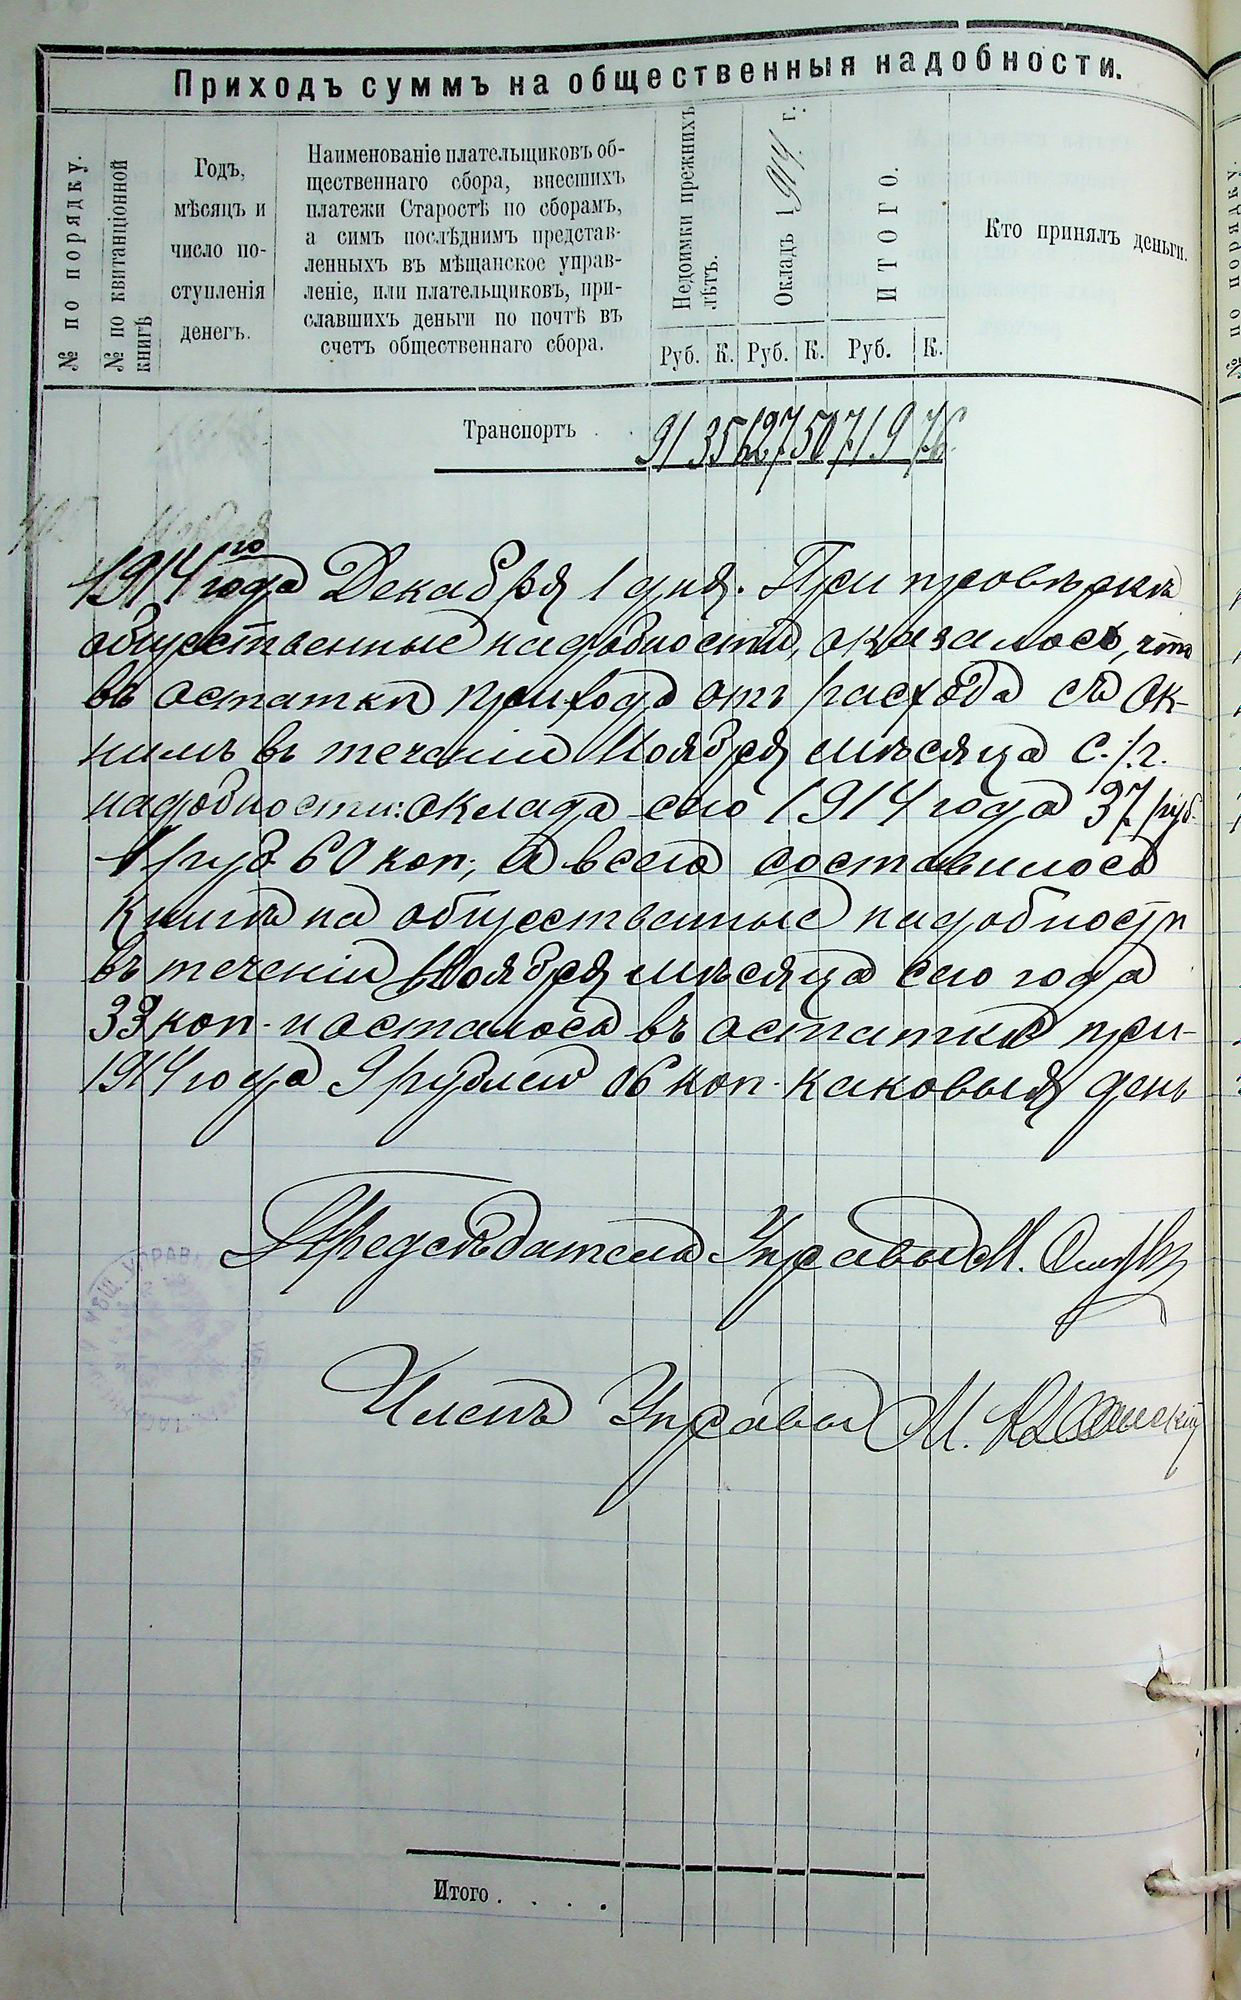 Приходъ суммъ на общественныя надобности.
№ по порядку.
№ по квитанціонной книгѣ
Годъ,
мѣсяцъ и
число по-
ступленія
денегъ.
Наименованіе плательщиковъ об-
щественнаго сбора, внесшихъ
платежи Старостѣ по сборамъ,
а симъ послѣднимъ представ-
ленныхъ въ мѣщанское управ-
леніе, или плательщиковъ, при-
славшихъ деньги по почтѣ въ
счетъ общественнаго сбора.
Недоимки прежнихъ лѣтъ.
Окладъ 1914 г.
ИТОГО.
Кто принялъ деньги.
Руб. К. Руб. К. Руб. К.
Транспортъ . . 91 35 627 50 719 76
1914го года Декабря 1 дня. При провѣркѣ
общественные надобности, оказалось, что
въ остатки прихода отъ расхода съ Ок-
нимъ въ теченіи Ноября мѣсяца с./г.
надобности: оклада сего 1914 года 37 руб.
1 руб 60 коп; а всего составилось
книгѣ на общественные надобности
въ теченіи Ноября мѣсяца сего года
33 коп. и осталось въ остатки при-
1914 года 9 рублей 06 коп. каковыя день
Предсѣдатель Управы М.
Членъ Управы М.
МѢЩ. УПРАВ
Итого . . . .
№ по порядку.